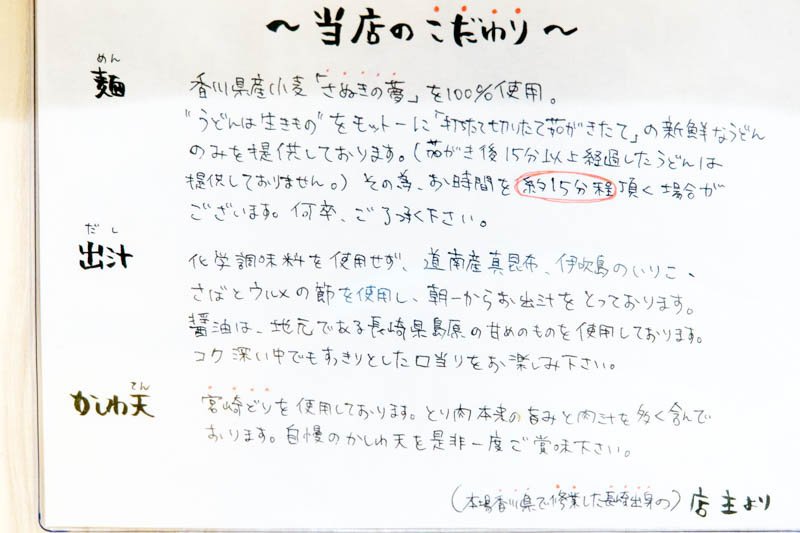 ～当店のこだわり～
めん
麺
香川県産小麦「さぬきの夢」を100%使用。
"うどんは生きもの"をモットーに「打ちたて切りたて茹がきたて」の新鮮なうどん
のみを提供しております。(茹がき後15分以上経過したうどんは
提供しておりません。)その為、お時間を約15分程頂く場合が
ございます。何卒、ご了承下さい。
だし
出汁
化学調味料を使用せず、道南産真昆布、伊吹島のいりこ、
さばとウルメの節を使用し、朝一からお出汁をとっております。
醤油は、地元である長崎県島原の甘めのものを使用しております。
コク深い中でもすっきりとした口当りをお楽しみ下さい。
てん
かしわ天
宮崎どりを使用しております。とり肉本来の旨みと肉汁を多く含んで
おります。自慢のかしわ天を是非一度ご賞味下さい。
(本場香川県で修業した長崎出身の)店主より